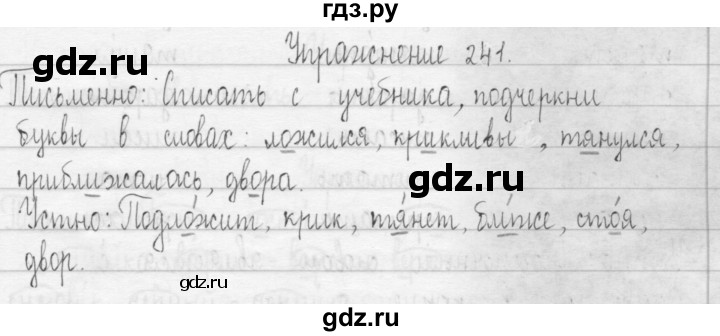 гдз.ру
Упражнение 241.
gdz.ru
gdz.ru
Письменно: Списать с учебника, подчеркни
буквы в словах: ложился, крикливы, тянулся,
приближалась, двора.
gdz.ru
Устно: Подложит, крик, тянет, ближе, стоя,
двор.
gdz.ru
gdz.ru
гдз.ру